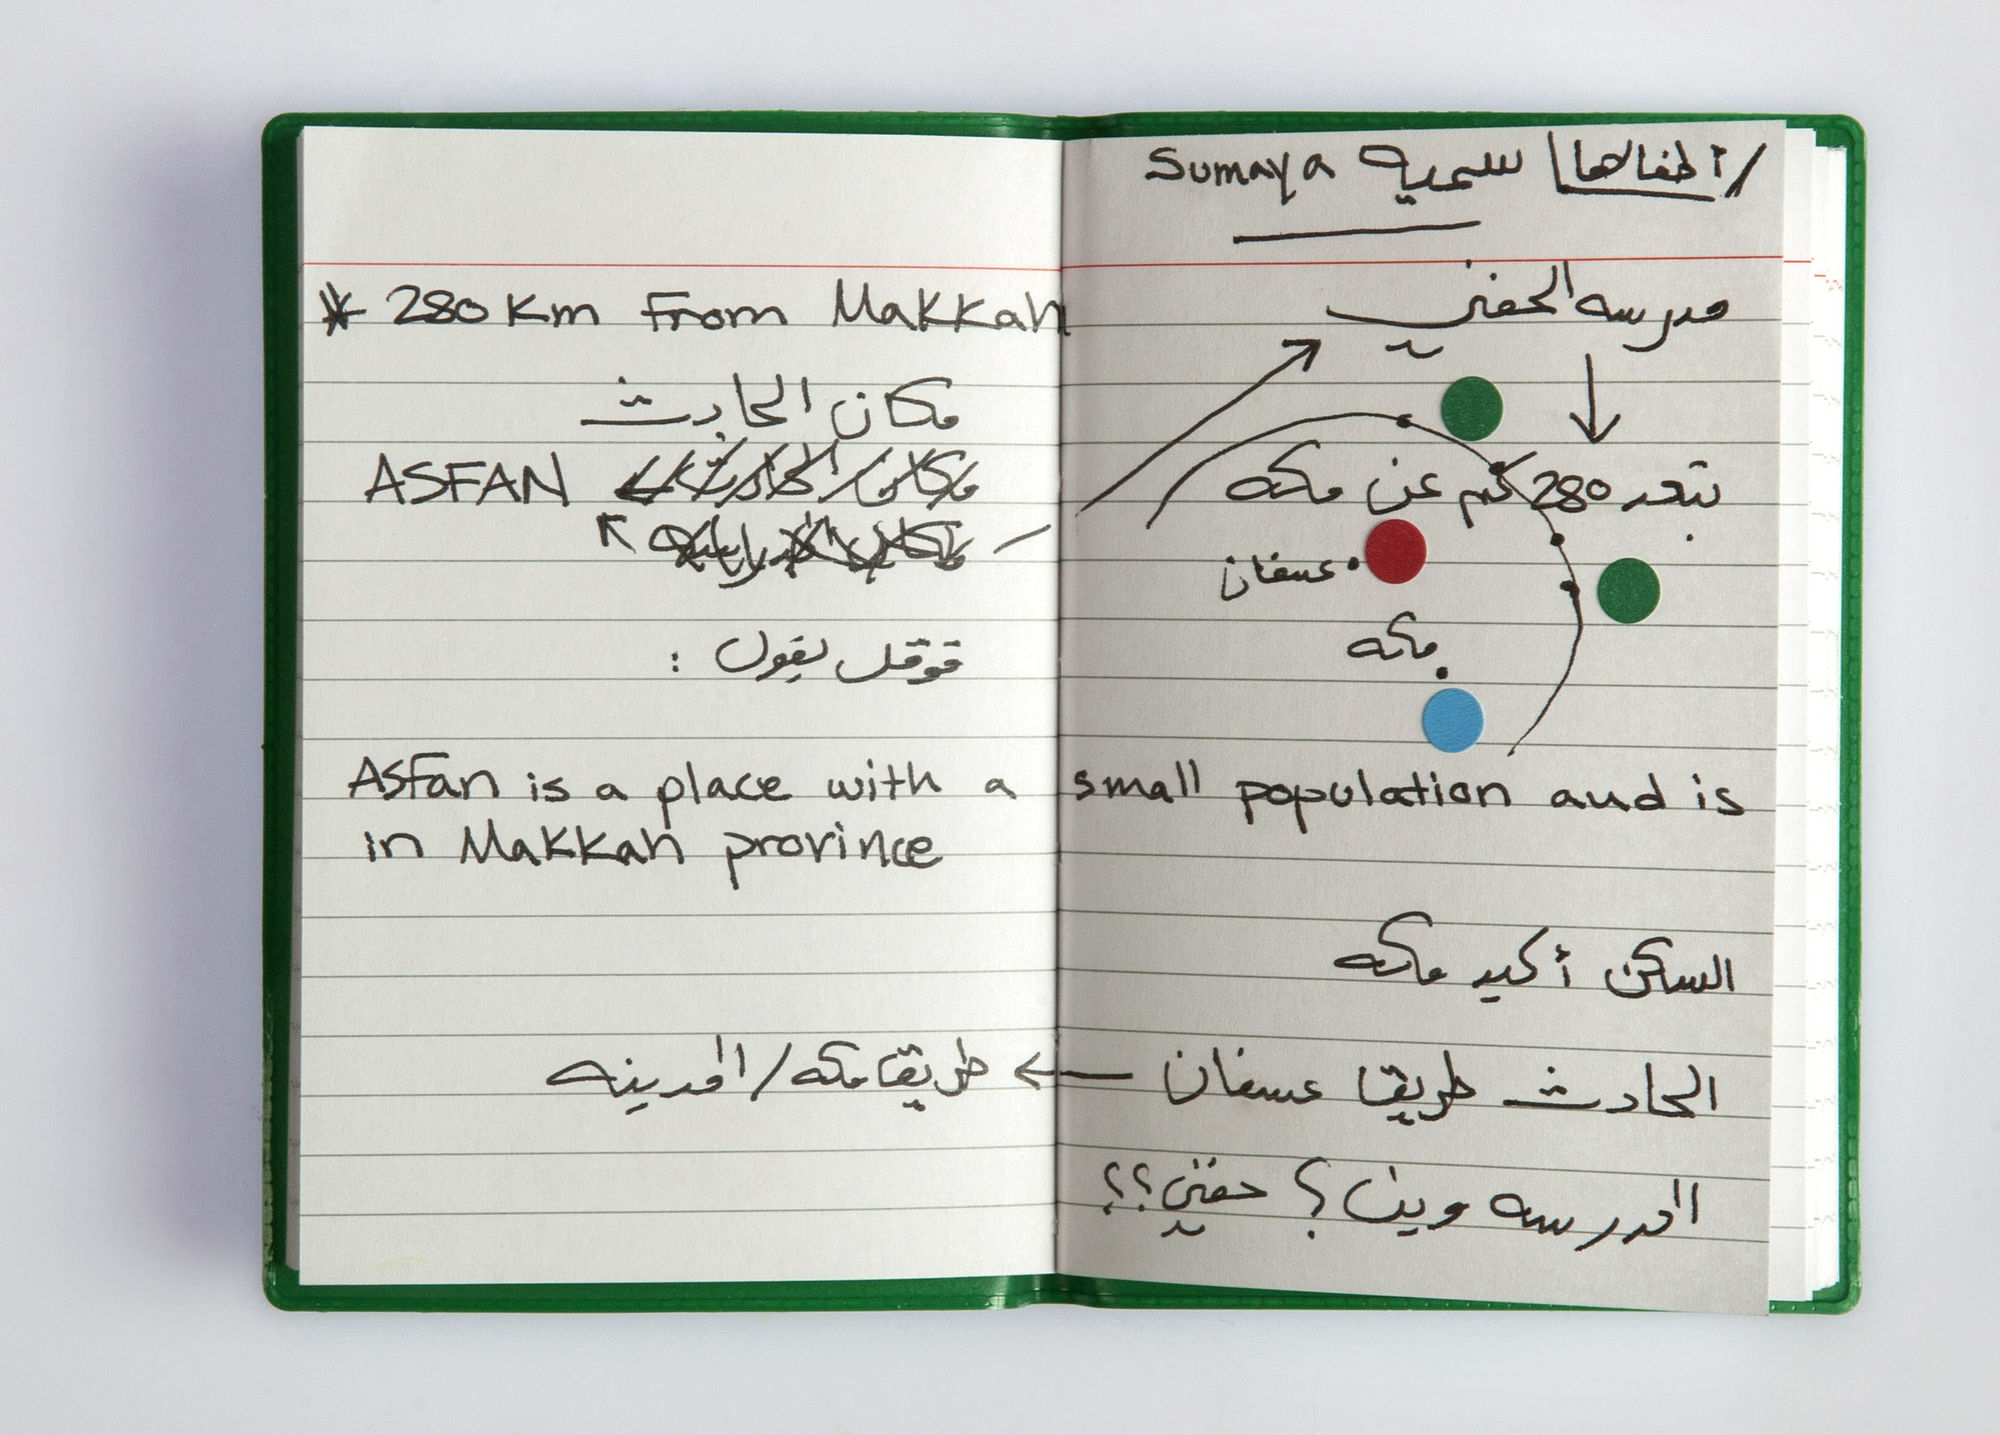 * 280 Km From Makkah
مكان الحادث
ASFAN
قوقل يقول :
Asfan is a place with a small population and is
in Makkah province
طريق مكه/المدينه
/أطفالها سميه Sumaya
مدرسه الحفني
تبعد 280 كم عن مكه
عسفان
مكه
السكن أكيد مكه
الحادث طريق عسفان ←
المدرسه وين؟ حفني؟؟